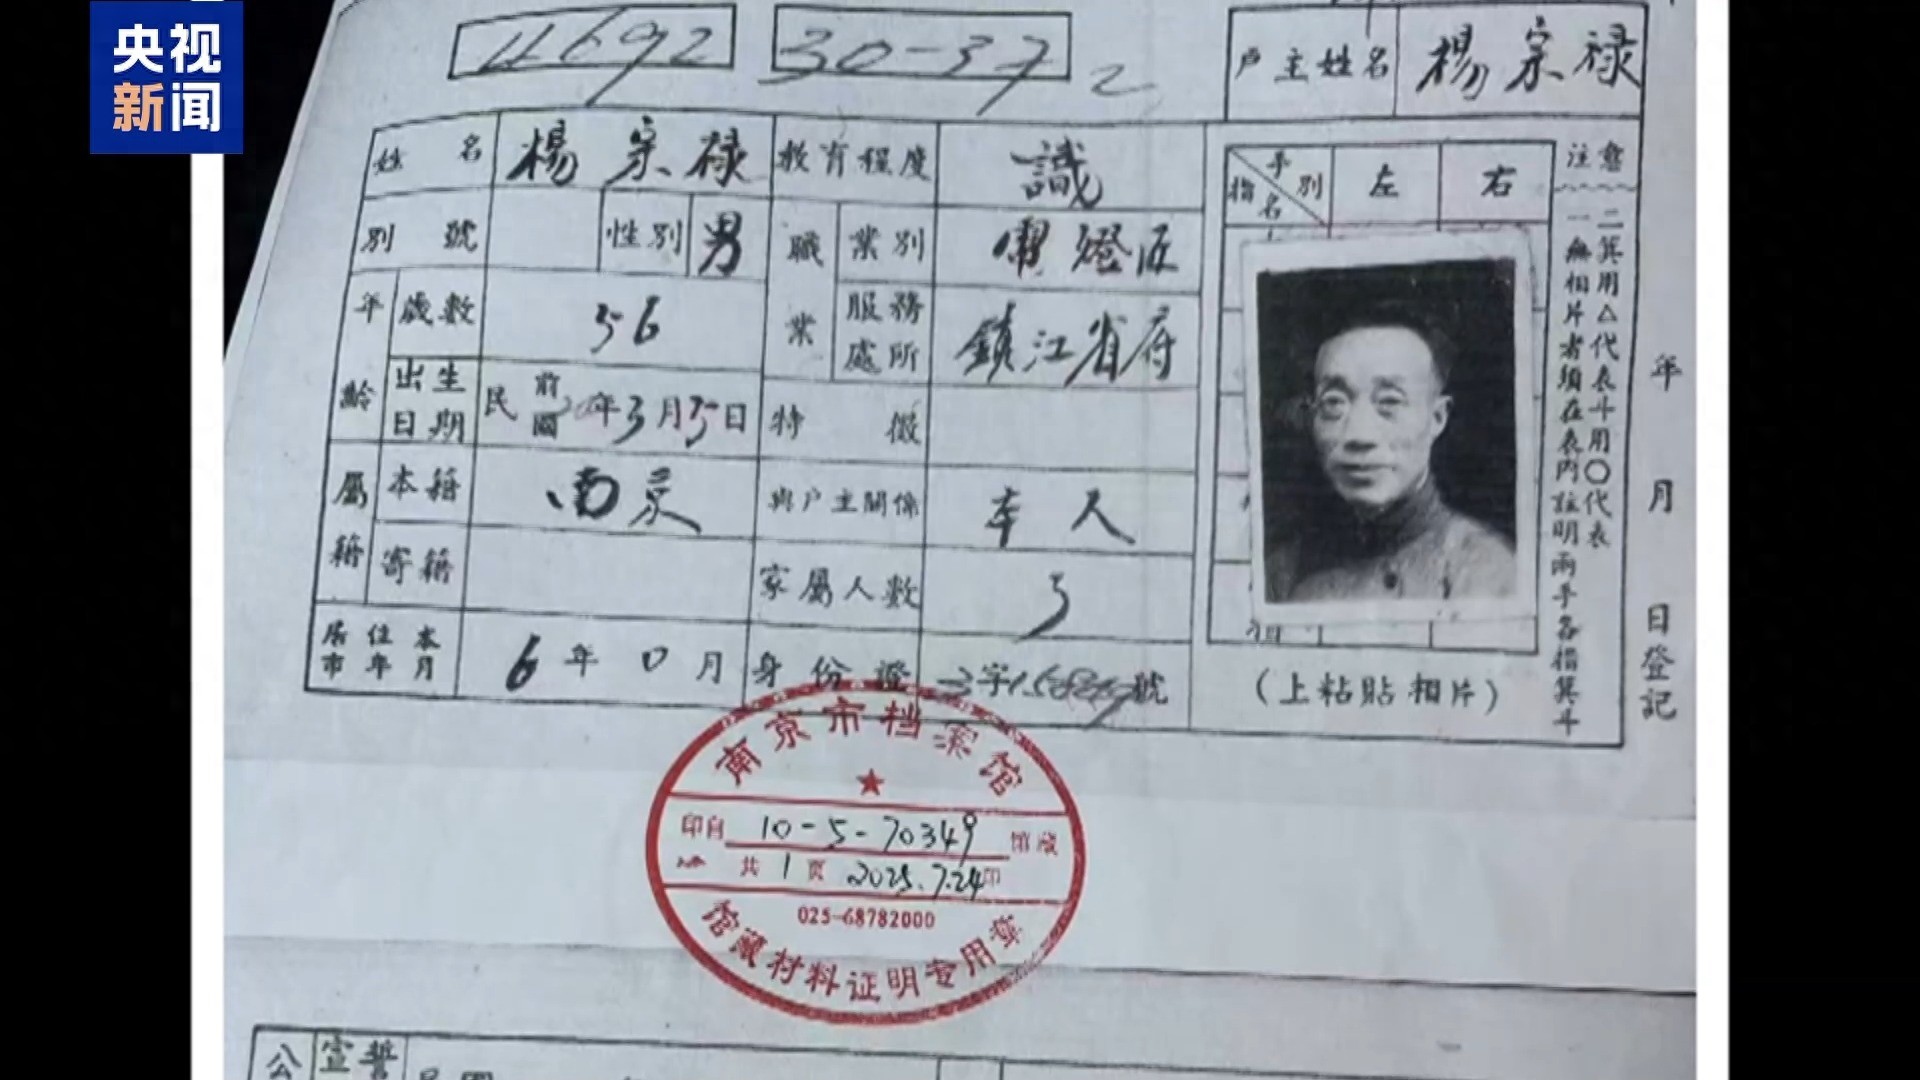 央视
新闻
4692
30-37
2
户主姓名
楊宗禄
姓名
楊宗禄
教育程度
識
別號
性别
男
職業
業別
燈匠
年齡
歲數
56
服務處所
鎮江省府
出生日期
民國前 年3月 日
特徵
屬籍
本籍
南京
與户主關係
本人
寄籍
家屬人数
3
居住本市年月
6年0月
身份證
號
手別
指名
左
右
注意
一無相片者須在表内註明兩手各指箕斗
二箕用△代表斗用〇代表
(上粘貼相片)
年月日登記
南京市档案馆
印自 10-5-70349 馆藏
共1页 2025.7.24印
025-68782000
馆藏材料证明专用章
公
宣誓
民國